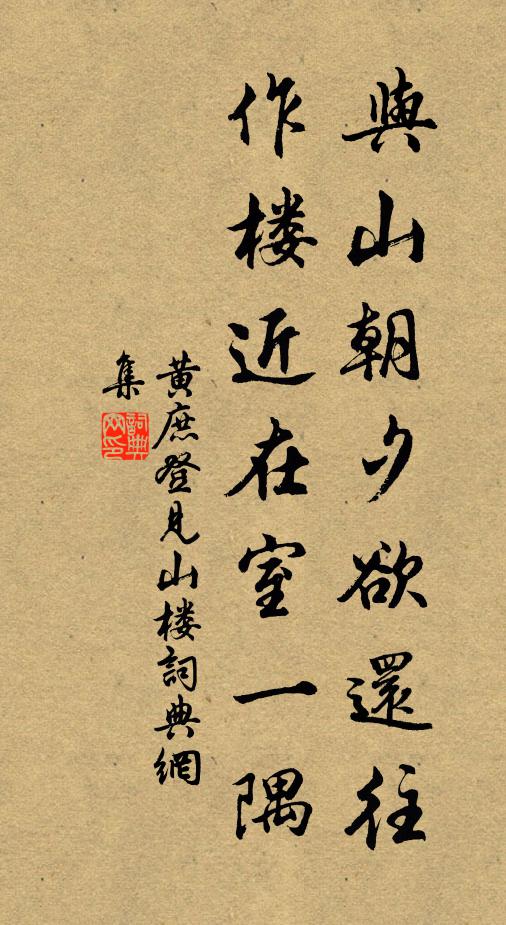 與山朝夕欲還往
作楼近在室一隅
黄庶登見山楼詞典網
集
詞典網印